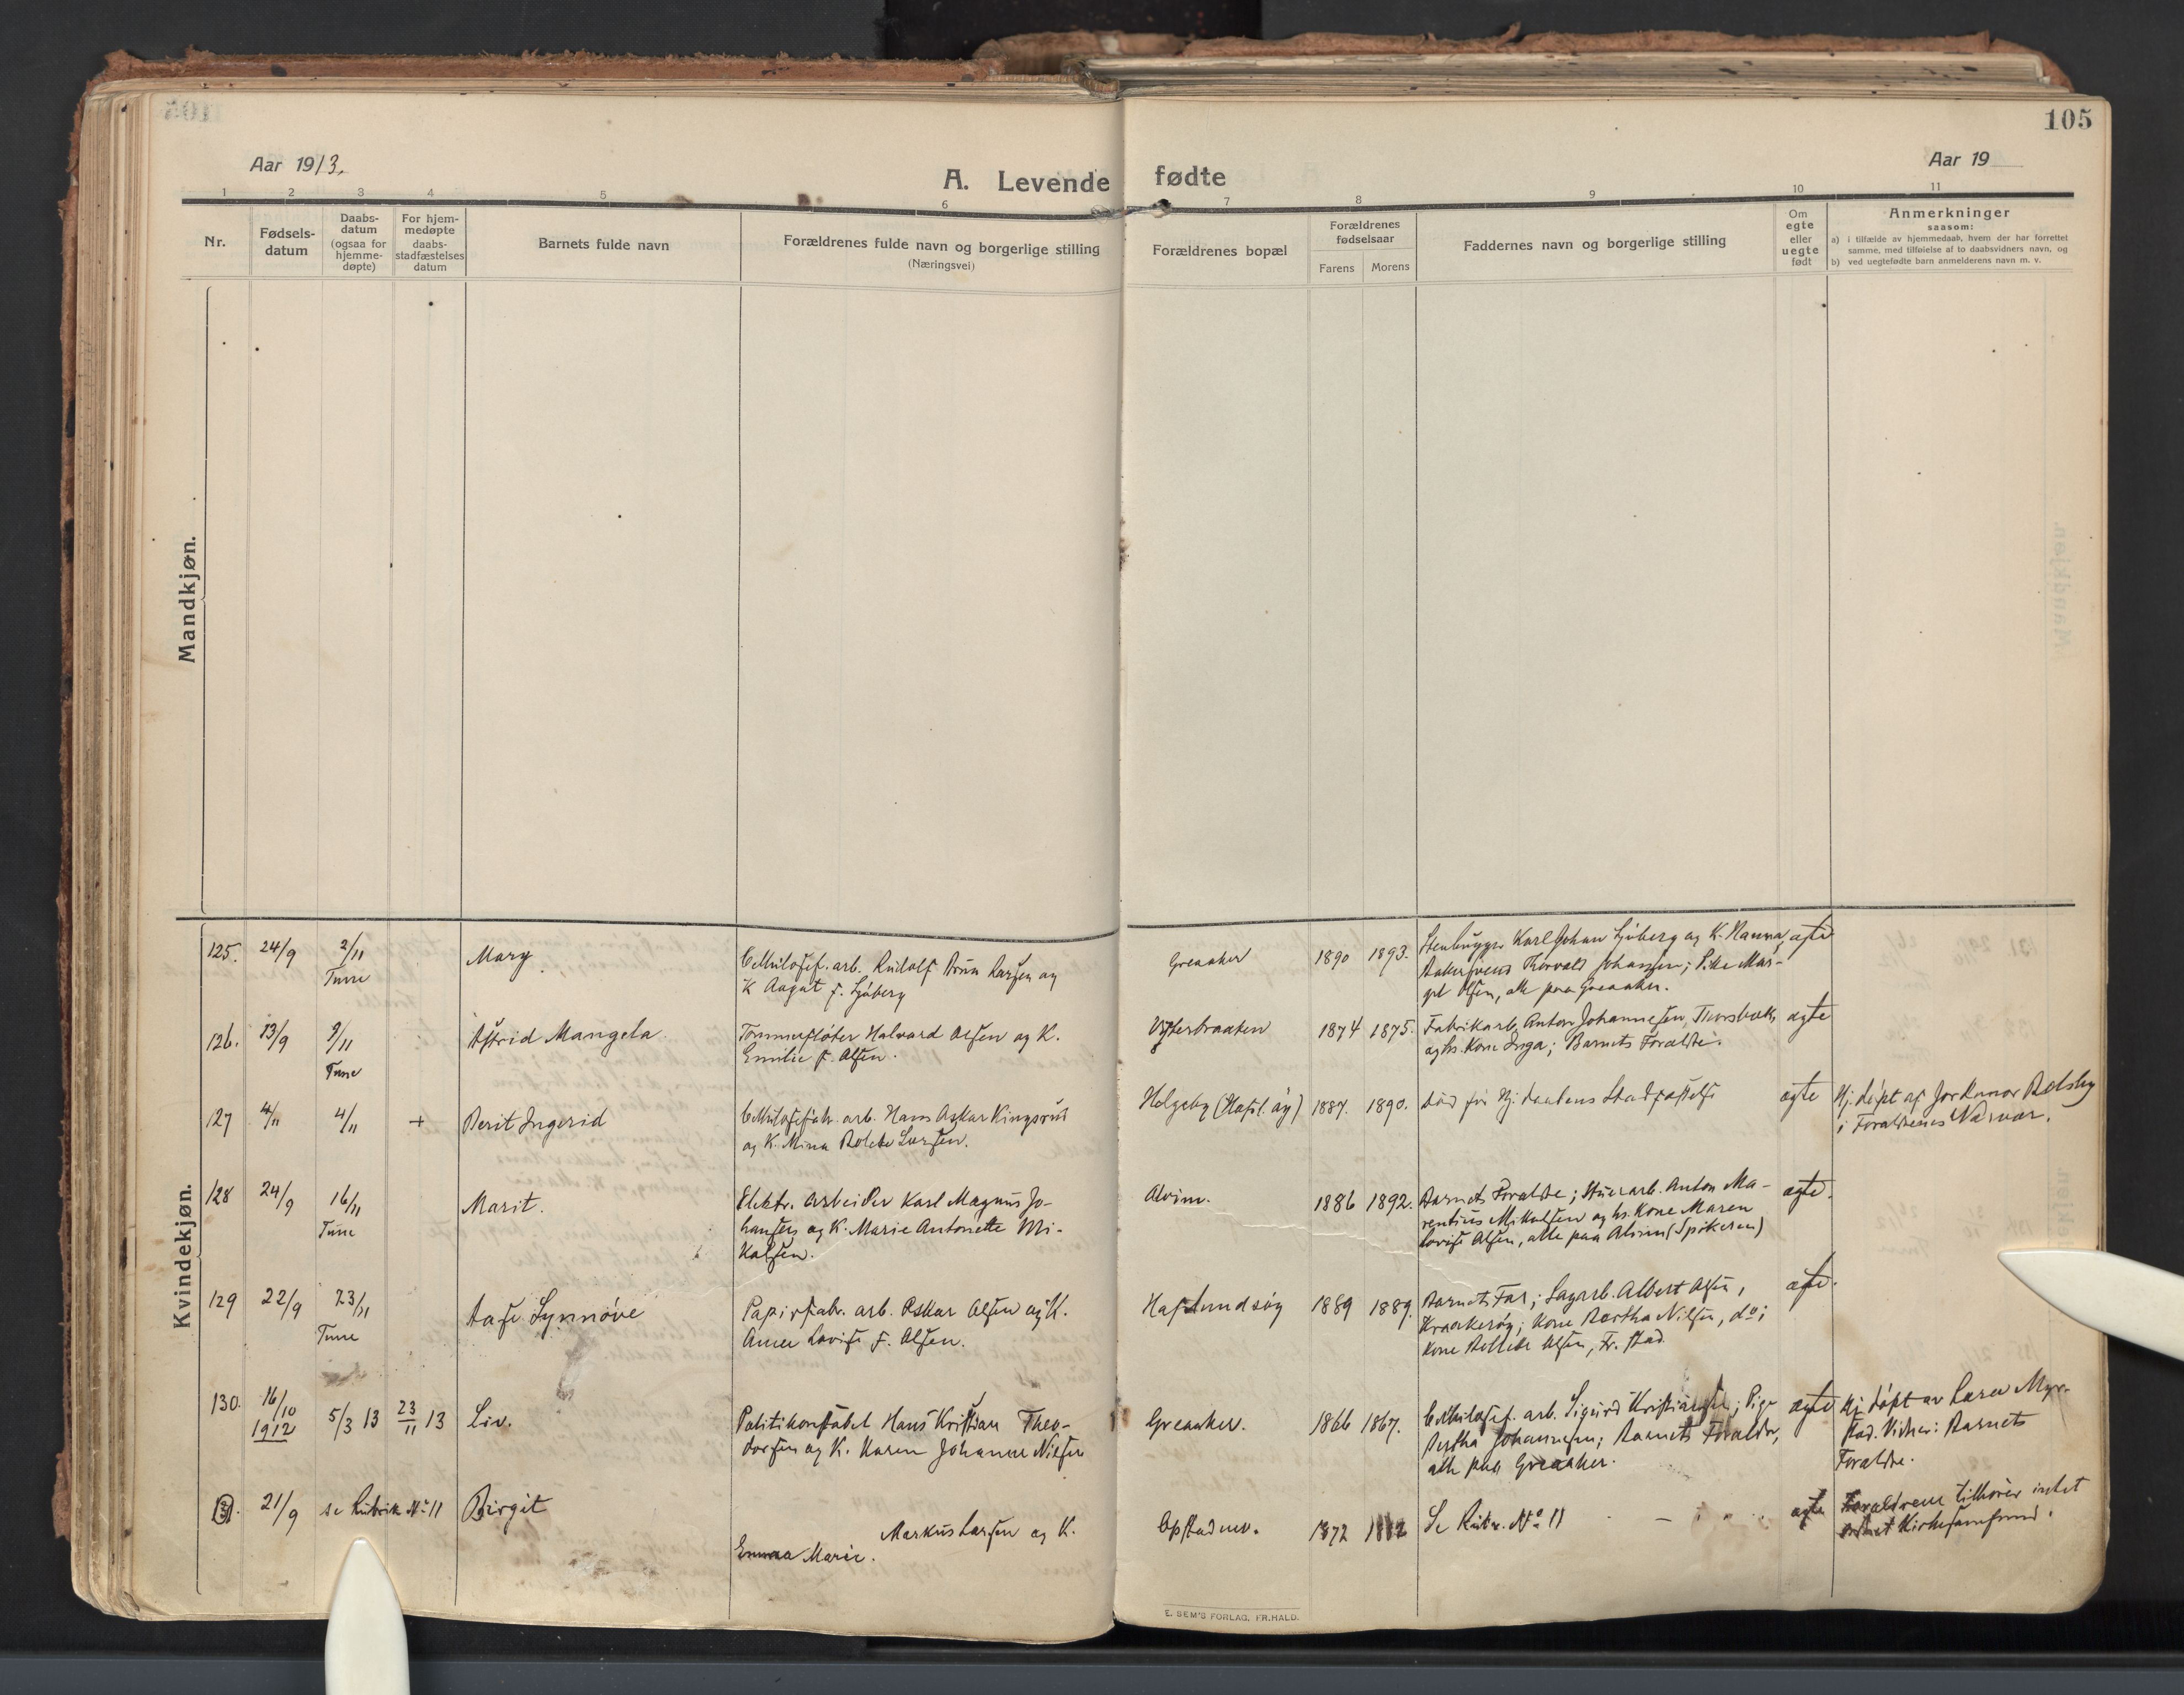 105
Aar 1913.
A. Levende fødte
Aar 19
1 2 3 4 5 6 7 8 9 10 11
Nr.
Fødsels-
datum
Daabs-
datum
(ogsaa for
hjemme-
døpte)
For hjem-
medøpte
daabs-
stadfæstelses
datum
Barnets fulde navn
Forældrenes fulde navn og borgerlige stilling
(Næringsvei)
Forældrenes bopæl
Forældrenes
fødselsaar
Farens Morens
Faddernes navn og borgerlige stilling
Om
egte
eller
uegte
født
Anmerkninger
saasom:
a) i tilfælde av hjemmedaab, hvem der har forrettet
samme, med tilføielse af to daabsvidners navn, og
b) ved uegtefødte barn anmelderens navn m. v.
Mandkjøn.
Kvindekjøn.
125. 24/9 2/11
Tune
Mary
Cellulosef. arb. Rudolf Brun Larsen og
K. Aagot f. Sjöberg
Greaaker
1890 1893.
Stenhugger Karl Johan Sjöberg og K. Hanna,
Bakersvend Thorvald Johansen; Pike Mar-
git Olsen, alle paa Greaaker.
ægte
126. 13/9 9/11
Tune
Astrid Mangela
Tømmerfløter Halvard Olsen og K.
Emilie f. Olsen.
1874 1875.
Fabrikarb. Anton Johannesen, Thorsbæk,
og hs. Kone Inga; Barnets Forældre.
ægte
127 4/11 4/11 +
Berit Ingerid
Cellulosefabr. arb. Hans Oskar Kingsrud
og K. Mina Bolette Larsen.
Helgeby (Hafsl.øy)
1887. 1890.
Död för Hj. daabens Stadfæstelse
ægte
Hj. døpt af Jordmor Rolsby
i Forældrenes Nærvær.
128 24/9 16/11
Tune
Marit.
Elektr. arbeider Karl Magnus Jo-
hansen og K. Marie Antonette Mi-
kalsen.
Alvim.
1886 1892.
Barnets Forældre; Stuerarb. Anton Ma-
rentius Mikalsen og hs. Kone Maren
Lovise Olsen, alle paa Alvim (Spikeren)
ægte.
129 22/9 23/11
Tune
Aase Synnøve
Papirfabr. arb. Oskar Olsen og K.
Anna Lovise f. Olsen.
Hafslundsøy
1889 1889.
Barnets Far; Sagarb. Albert Olsen,
Kraakerøy; Kone Bertha Nilsen, do;
Kone Bollette Olsen, Fr. stad.
ægte.
130. 16/10
1912
5/3 13 23/11 13
Liv.
Politikonstabel Hans Kristian Theo-
dorsen og K. Karen Johanne Nilsen
Greaaker.
1866 1867.
Cellulosef. arb. Sigurd Kristiansen; Pige
Bertha Johannesen; Barnets Forældre,
alle paa Greaaker.
ægte
Hj. døpt av Lærer Myr-
stad. Vidner: Barnets
Forældre.
131. 21/9 se Rubrik No 11
Birgit
Markus Larsen og K.
Emma Marie.
Opstadnes.
1872
Se Rubr. No 11
ægte
Forældrene tilhører intet
ordnet Kirkesamfund.
E. SEM'S FORLAG, FR.HALD.